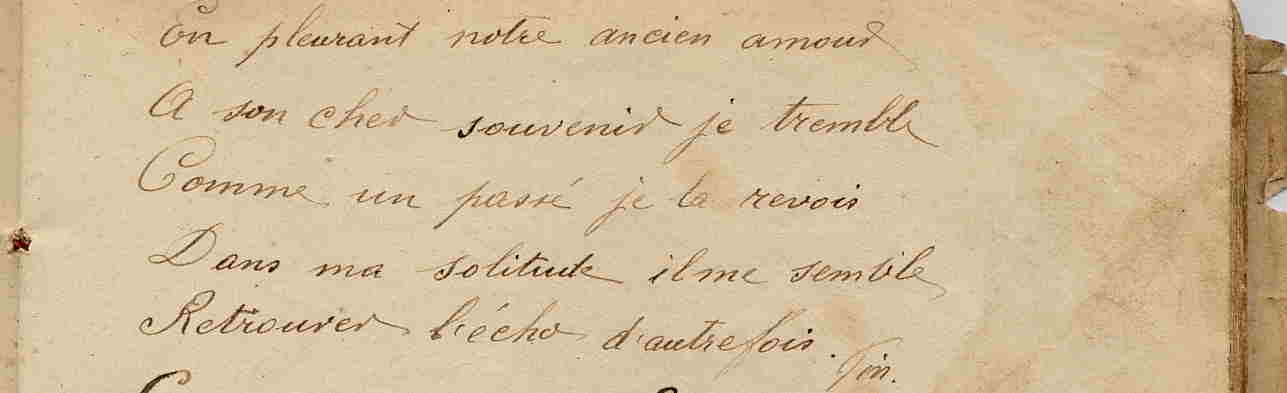 En pleurant notre ancien amour
A son cher souvenir je tremble
Comme un passé je la revois
Dans ma solitude il me semble
Retrouver l'écho d'autrefois.
Fin.